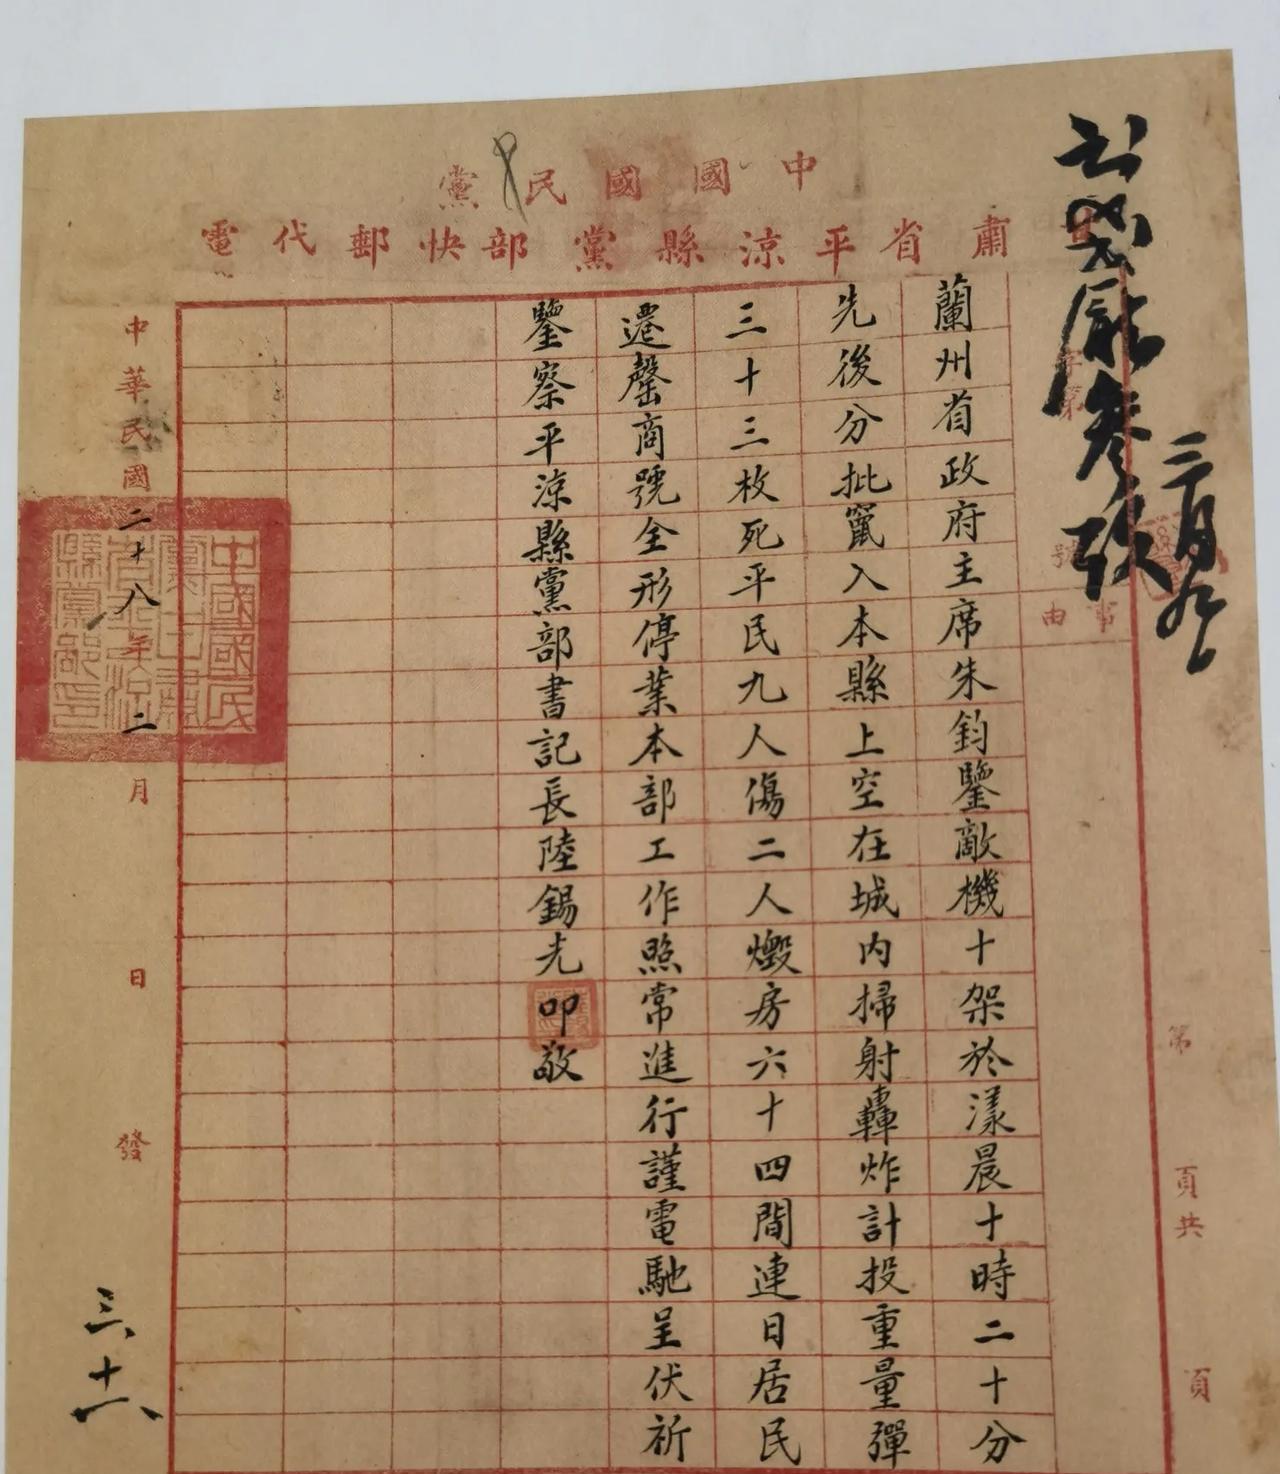 中國國民黨
甘肅省平涼縣黨部快郵代電
三月九
字第
號
事由
蘭州省政府主席朱鈞鑒敵機十架於漾晨十時二十分
先後分批竄入本縣上空在城內掃射轟炸計投重量彈
三十三枚死平民九人傷二人燬房六十四間連日居民
遷罄商號全形停業本部工作照常進行謹電馳呈伏祈
鑒察平涼縣黨部書記長陸錫光叩敬
中華民國二十八年二月 日 發
中國國民黨甘肅省平涼縣黨部印
第 頁共 頁